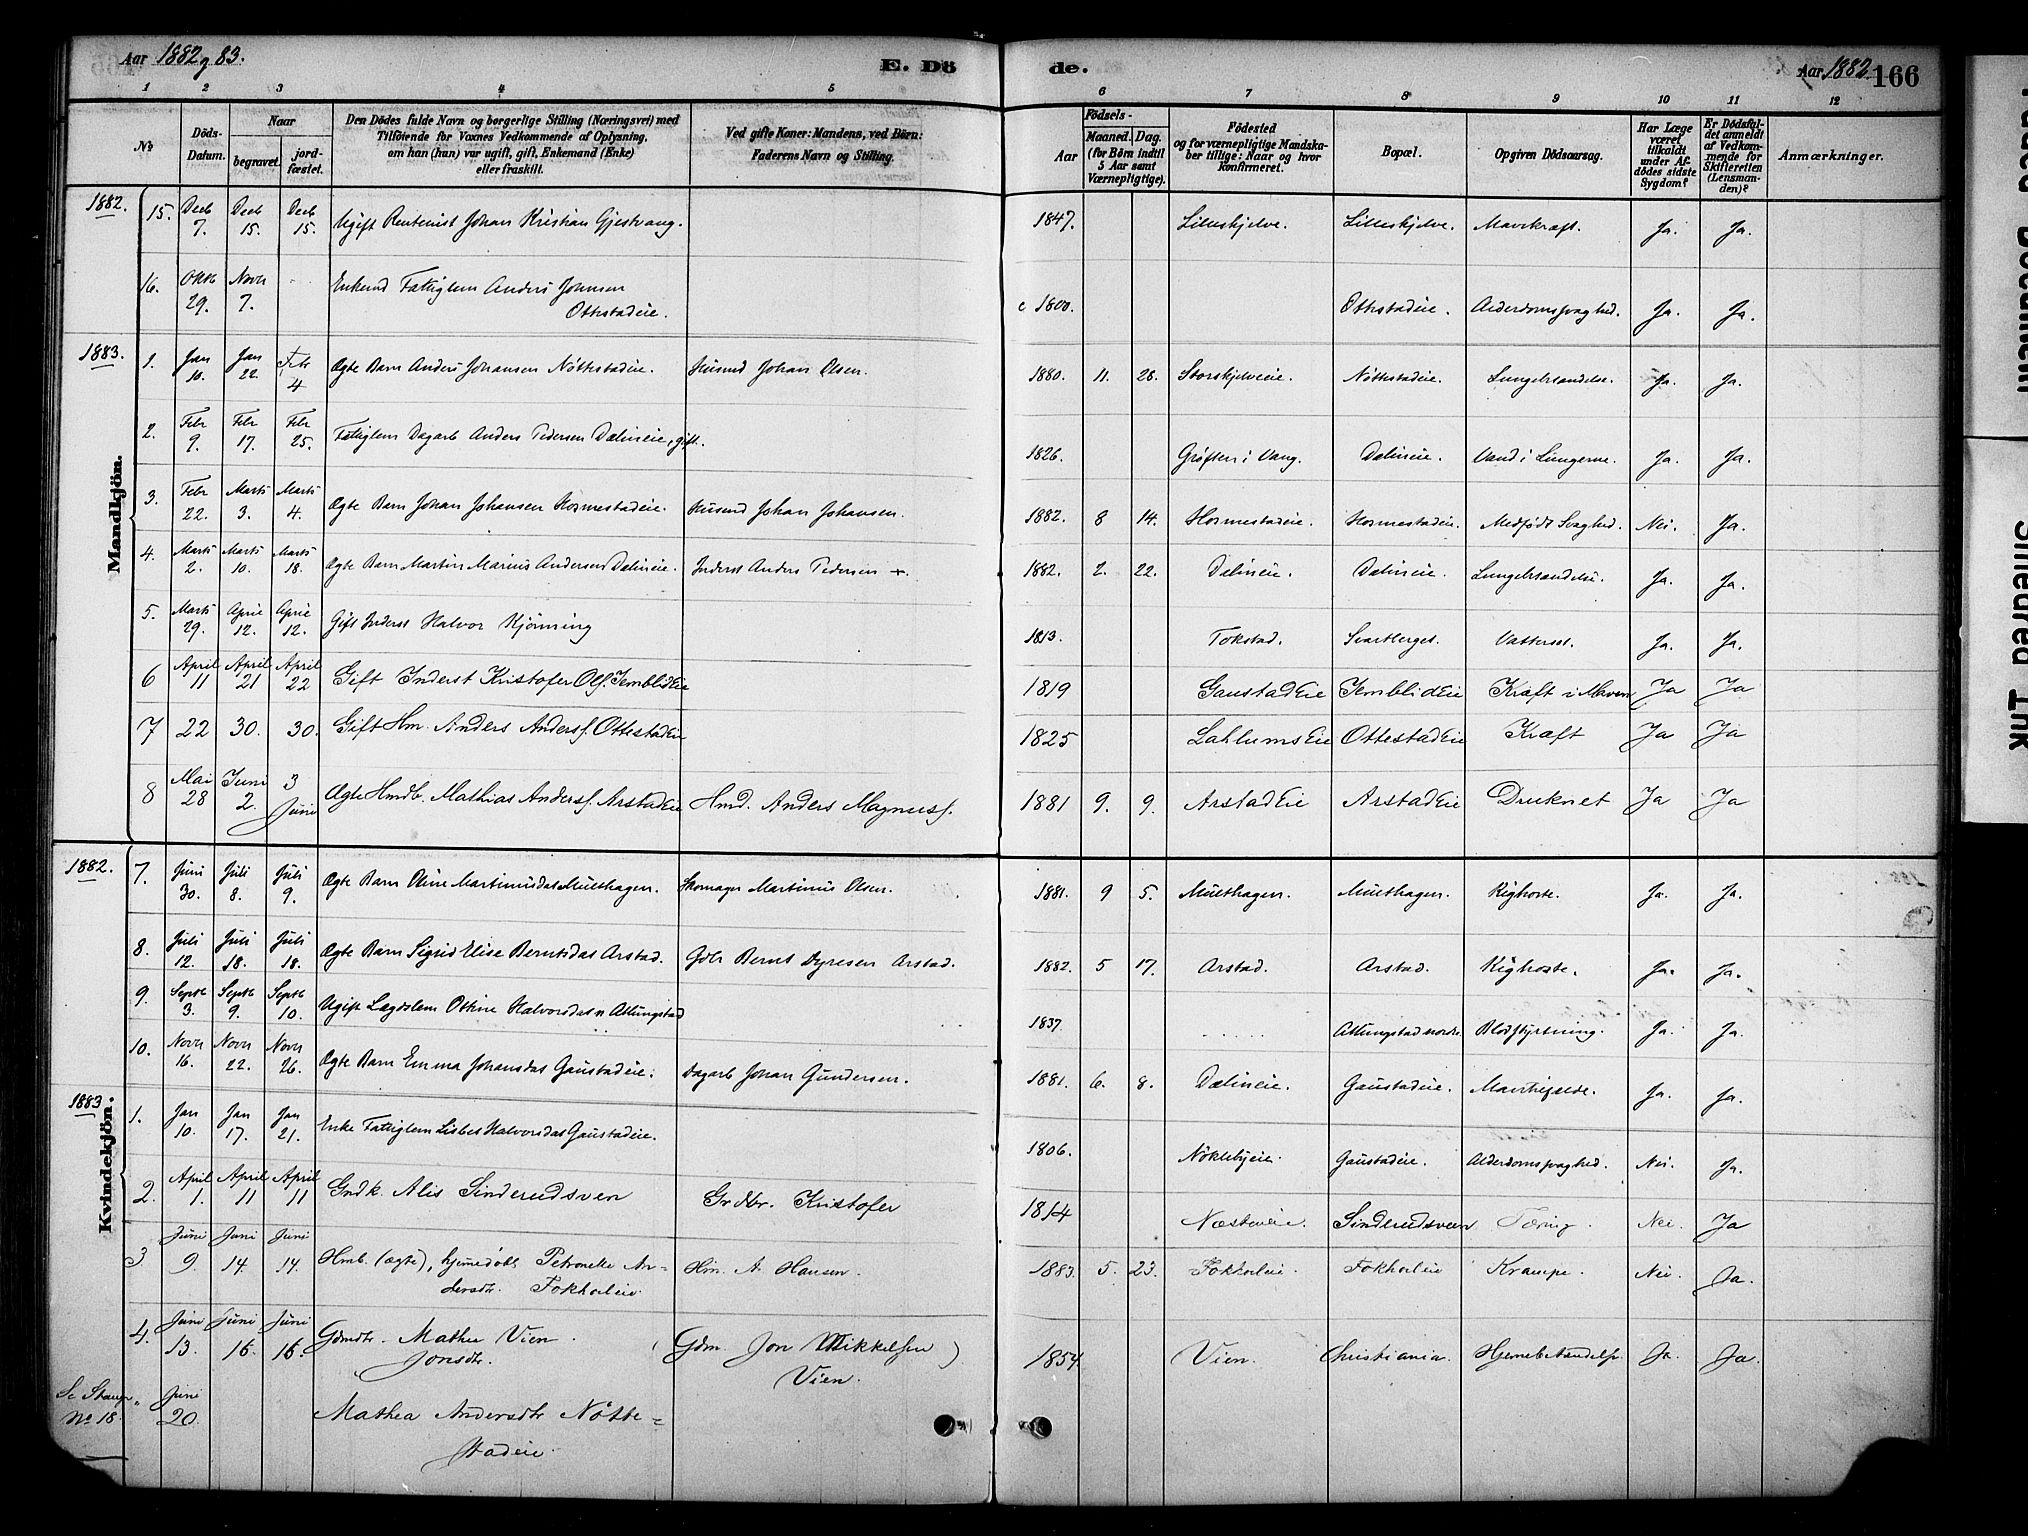 Aar 1882 g 83.
E. Dö
de.
Aar 1882 166
1 2 3 4 5 6 7 8 9 10 11 12
No
Döds-
Datum.
Naar
begravet.
jord-
fæstet.
Den Dödes fulde Navn og borgerlige Stilling (Næringsvei) med
Tilföiende for Voxnes Vedkommende af Oplysning,
om han (hun) var ugift, gift, Enkemand (Enke)
eller fraskilt.
Ved gifte Koner: Mandens, ved Börn:
Faderens Navn og Stilling.
Födsels-
Aar
Maaned. Dag.
(for Börn indtil
5 Aar samt
Værnepligtige).
Födested
og for værnepligtige Mandska-
ber tillige: Naar og hvor
konfirmeret.
Bopæl.
Opgiven Dödsaarsag.
Har Læge
været
tilkaldt
under Af-
dödes sidste
Sygdom?
Er Dödsfal-
det anmeldt
af Vedkom-
mende for
Skifteretten
(Lensman-
den)?
Anmærkninger.
Mandkjön.
1882.
15. Decb 7. Decb 15. Decb 15. Ugift Rentenist Johan Kristian Gjestvang. 1847. Lilleskjelve. Lilleskjelve. Mavekræft. Ja. Ja.
16. Oktb 29. Novr 7. - Enkemd Fattiglem Anders Jonsen
Ottestadeie. c 1800. Ottestadeie. Alderdomssvaghed. Ja. Ja.
1883.
1. Jan 10. Jan 22. Febr 4 Ægte Barn Anders Johansen Nöttestadeie. Husmd Johan Olsen. 1880. 11. 28. Storskjelveeie. Nöttestadeie. Lungebtændelse. Ja. Ja.
2. Febr 9. Febr 17. Febr 25. Fattiglem Dagarb Anders Pedersen Dælineie, gift. 1826. Gröften i Vang. Dælineie. Vand i Lungerne. Ja. Ja.
3. Febr 22. Marts 3. Marts 4. Ægte Barn Johan Johansen Hosmestadeie. Husmd Johan Johansen. 1882. 8 14. Hosmestadeie. Hosmestadeie. Medfödt Svaghed. Nei. Ja.
4. Marts 2. Marts 10. Marts 18. Ægte Barn Martin Marius Andersen Dælineie. Inderst Anders Pedersen +. 1882. 2. 22. Dælineie. Dælineie. Lungebtændelse. Ja. Ja.
5. Marts 29. April 12. April 12. Gift Inderst Halvor Kjönning 1813. Tokstad. Svartberget. Vattersot. Ja. Ja.
6 April 11 April 21 April 22 Gift Inderst Kristofer Ols. JemblidEie 1819 GaustadEie JemblidEie Kræft i Maven Ja Ja
7 22 30. 30. Gift Hm. Anders Anders. OttestadEie 1825 LahlumsEie OttestadEie Kræft Ja Ja
8 Mai 28 Juni 2. 3 Juni Ægte Hmdb. Mathias Anders. ArstadEie Hmd. Anders Magnus. 1881 9. 9. ArstadEie ArstadEie Druknet Ja Ja
Kvindekjön.
1882.
7. Juni 30. Juli 8. Juli 9. Ægte Barn Oline Martinusdas Multhagen. Skomager Martinus Olsen. 1881. 9 5. Multhagen. Multhagen. Kighoste. Ja. Ja.
8. Juli 12. Juli 18. Juli 18. Ægte Barn Sigrid Elise Berntsdas Arstad. Gdbr Bernt Dyresen Arstad. 1882. 5 17. Arstad. Arstad. Kighoste. Ja. Ja.
9. Septb 3. Septb 9. Septb 10. Ugift Lægdslem Ottine Halvorsdas n Atlungstad 1837. ..... Atlungstad nordre. Blodstyrtning. Ja. Ja.
10. Novr 16. Novr 22. Novr 26. Ægte Barn Emma Johansdas Gaustadeie. Dagarb Johan Gundersen. 1881. 6. 8. Dælineie. Gaustadeie. Ja. Ja.
1883
1. Jan 10. Jan 17. Jan 21. Enke Fattiglem Lisbet Halvorsdas Gaustadeie. 1806. Nöklebyeie. Gaustadeie. Alderdomssvaghed. Nei. Ja.
2. April 1. April 11 April 11 Gndk. Alis Sinderudsven Grdbr. Kristofer 1814 Næsteeie. Sinderudsveen Tæring. Nei. Ja
3 Juni 9. Juni 14. Juni 14. Hmb. (ægte), hjemedöbt Petronelle An-
dersdtr. Fokholeie. Hm. A. Hansen. 1883. 5. 23. Fokholeie. Fokholeie Krampe. Nei. Ja.
4. Juni 13. Juni 16. Juni 16. Gdmdtr. Mathea Vien.
Jonsdtr. (Gdm. Jon Mikkelsen)
Vien. 1854 Vien. Christiania. Ja. Ja.
Se Stange
No 18. " Juni 20. Mathea Andersdtr Nötte-
stadeie.